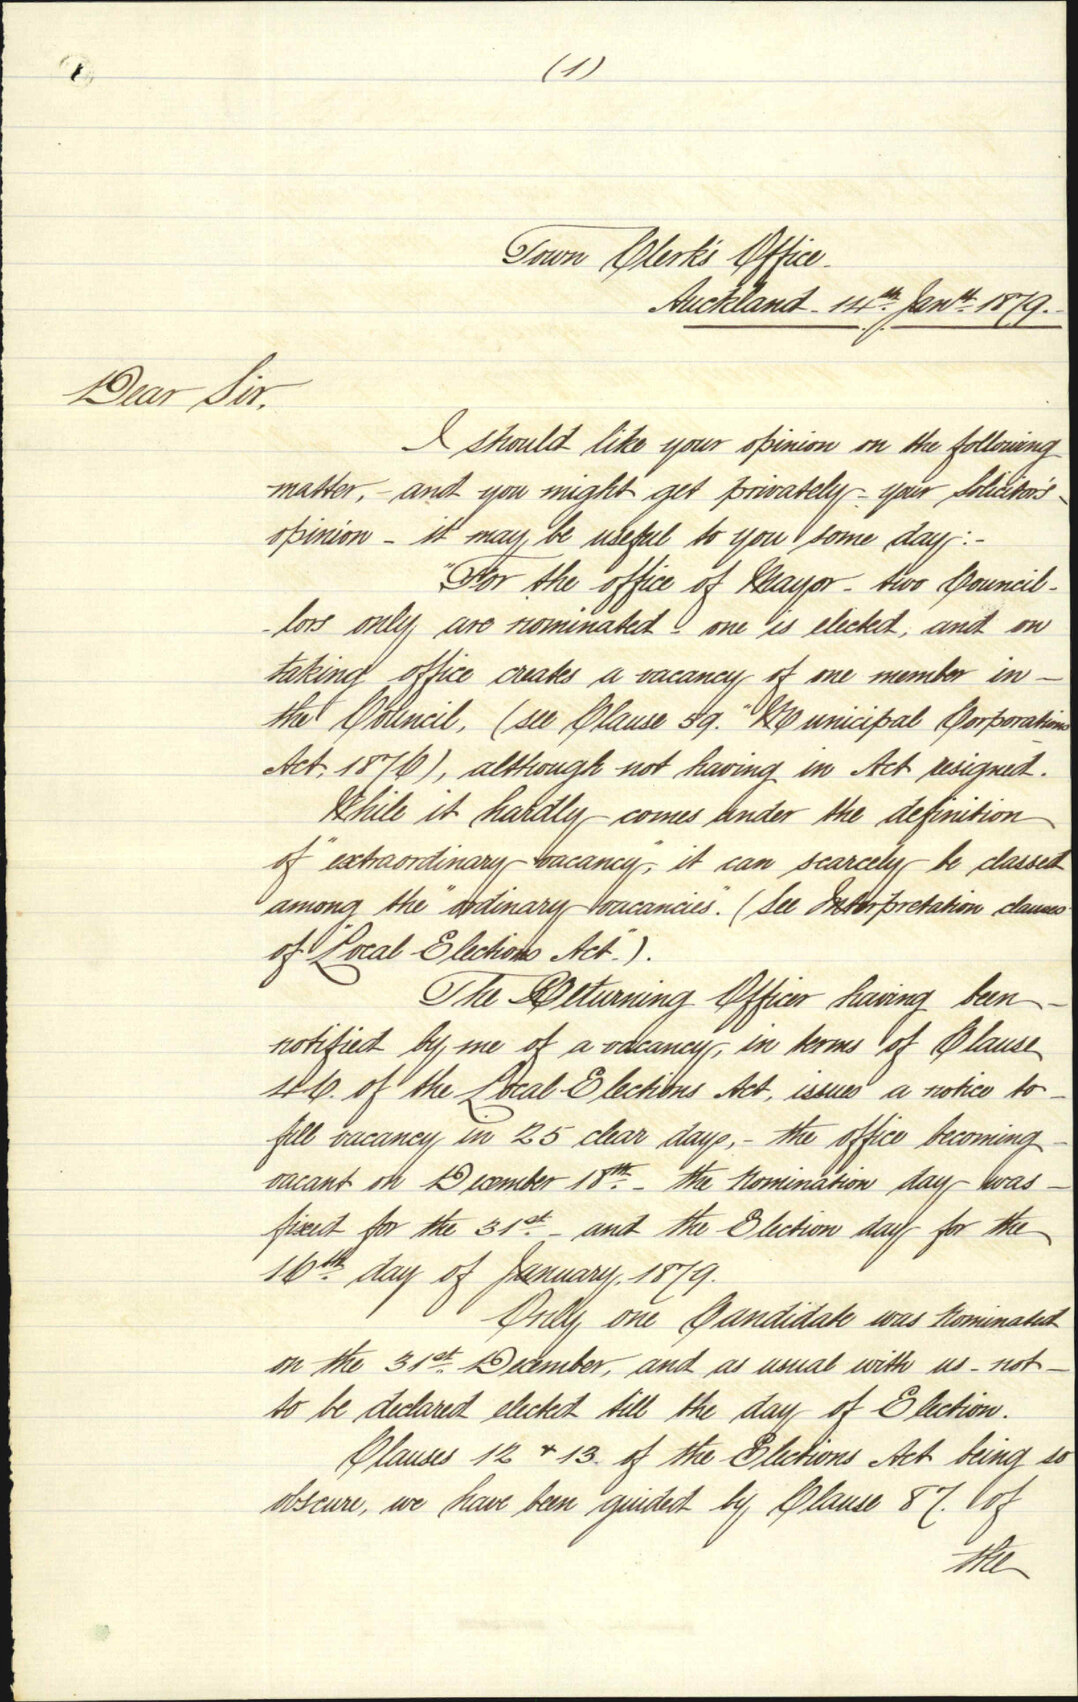 (1)
Town Clerk's Office.
Auckland. 14th Jany. 1879.
Dear Sir,
I should like your opinion on the following
matter, - and you might get privately - your Solicitor's
opinion - it may be useful to you some day:-
"For the office of Mayor - two Council-
-lors only are nominated - one is elected, and on
taking office creates a vacancy of one member in -
the Council, (see Clause 59. "Municipal Corporations
Act, 1876), although not having in Act resigned.
While it hardly comes under the definition
of "extraordinary vacancy", it can scarcely be classed
among the "ordinary vacancies". (See Interpretation clauses
of "Local Elections Act").
The Returning Officer having been -
notified by me of a vacancy, in terms of Clause
46. of the Local Elections Act, issues a notice to -
fill vacancy in 25 clear days, - the office becoming -
vacant on December 18th. - the Nomination day was -
fixed for the 31st. - and the Election day for the
16th. day of January, 1879.
Only one Candidate was Nominated
on the 31st. December, and as usual with us - not -
to be declared elected till the day of Election.
Clauses 12 & 13. of the Elections Act being so
obscure, we have been guided by Clause 87. of
the